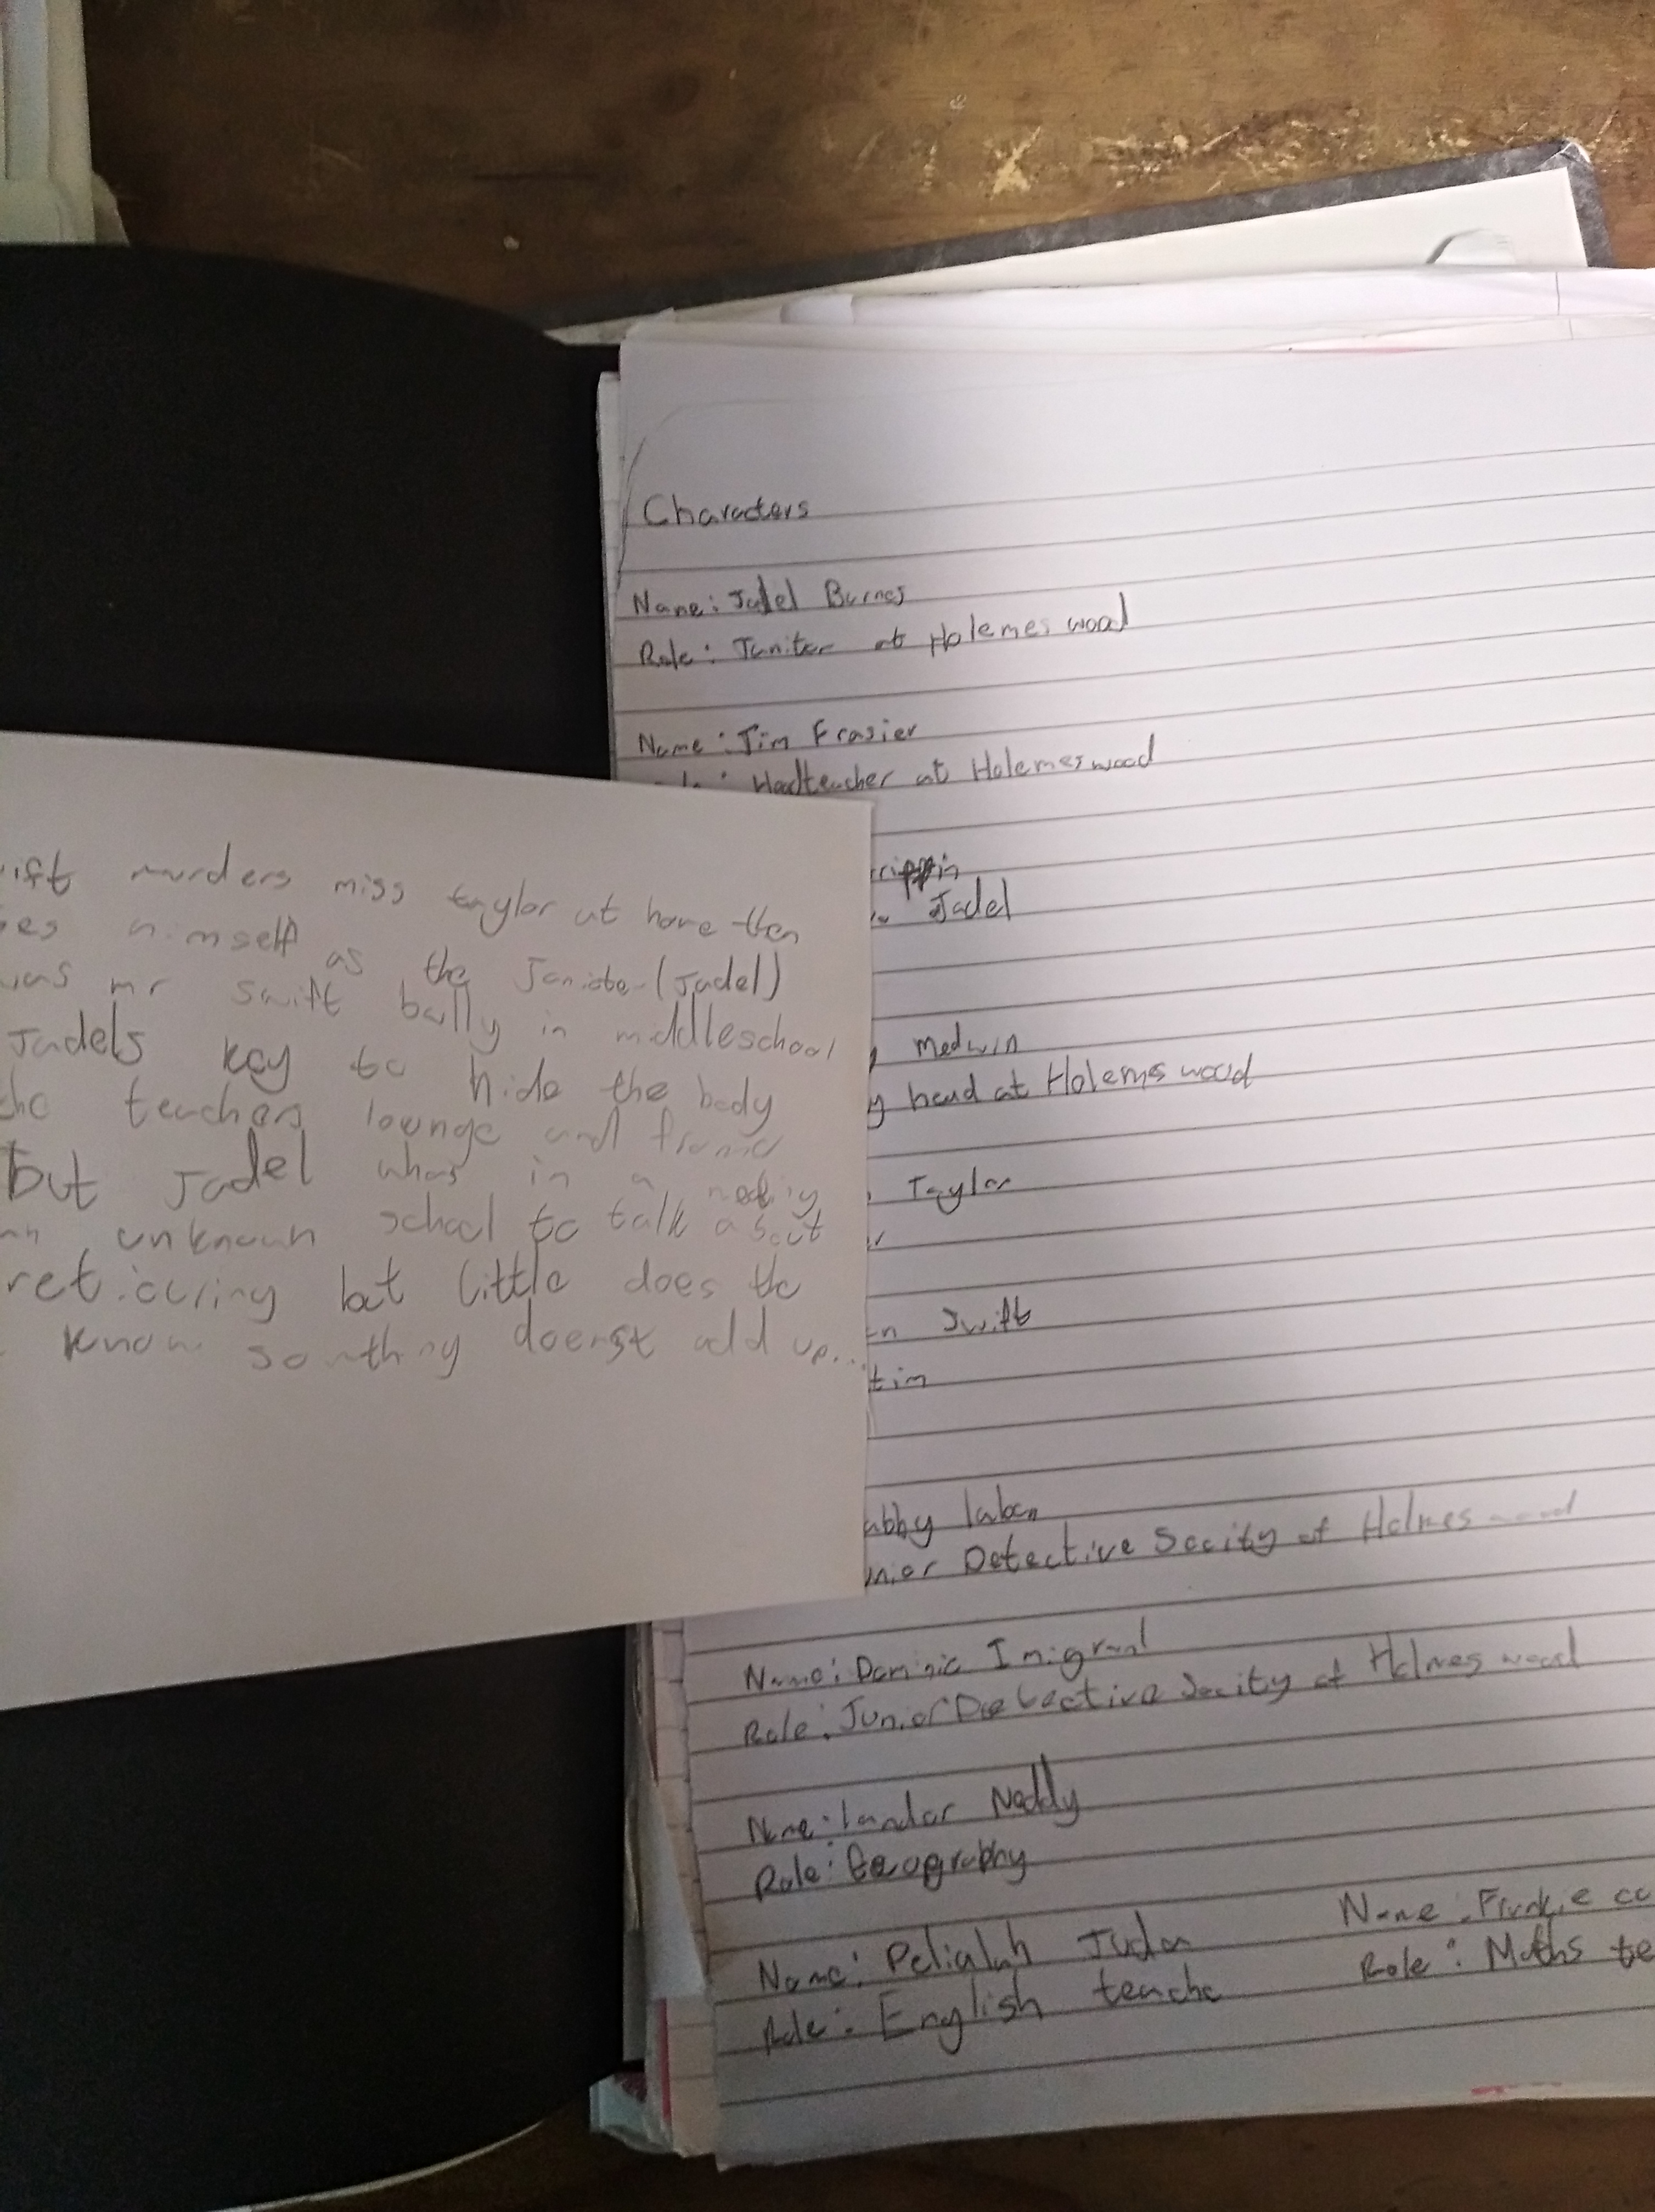 Characters
Name: Jadel Burnes
Role: Janiter at Holemes wood
Name: Jim Frasier
Headteacher at Holemes wood
Jadel
medwin
head at Holemes wood
Taylor
Swift
tim
abby laben
nior Detective Socity of Holmes wood
Name: Dominic Imigrant
Role: Junior Detective Socity of Holmes wood
Name: landor Neddy
Role: Geography
Name: Pelialah Juda
Role: English teache
Name: Frankie co
Role: Maths te
ift murders miss taylor at home then
es himself as the Janiter (Jadel)
was mr swift bully in middleschool
Jadels key to hide the body
the teachers lounge and frame
but Jadel whas in a
an unknown school to talk about
but little does the
know somthing doenst add up...